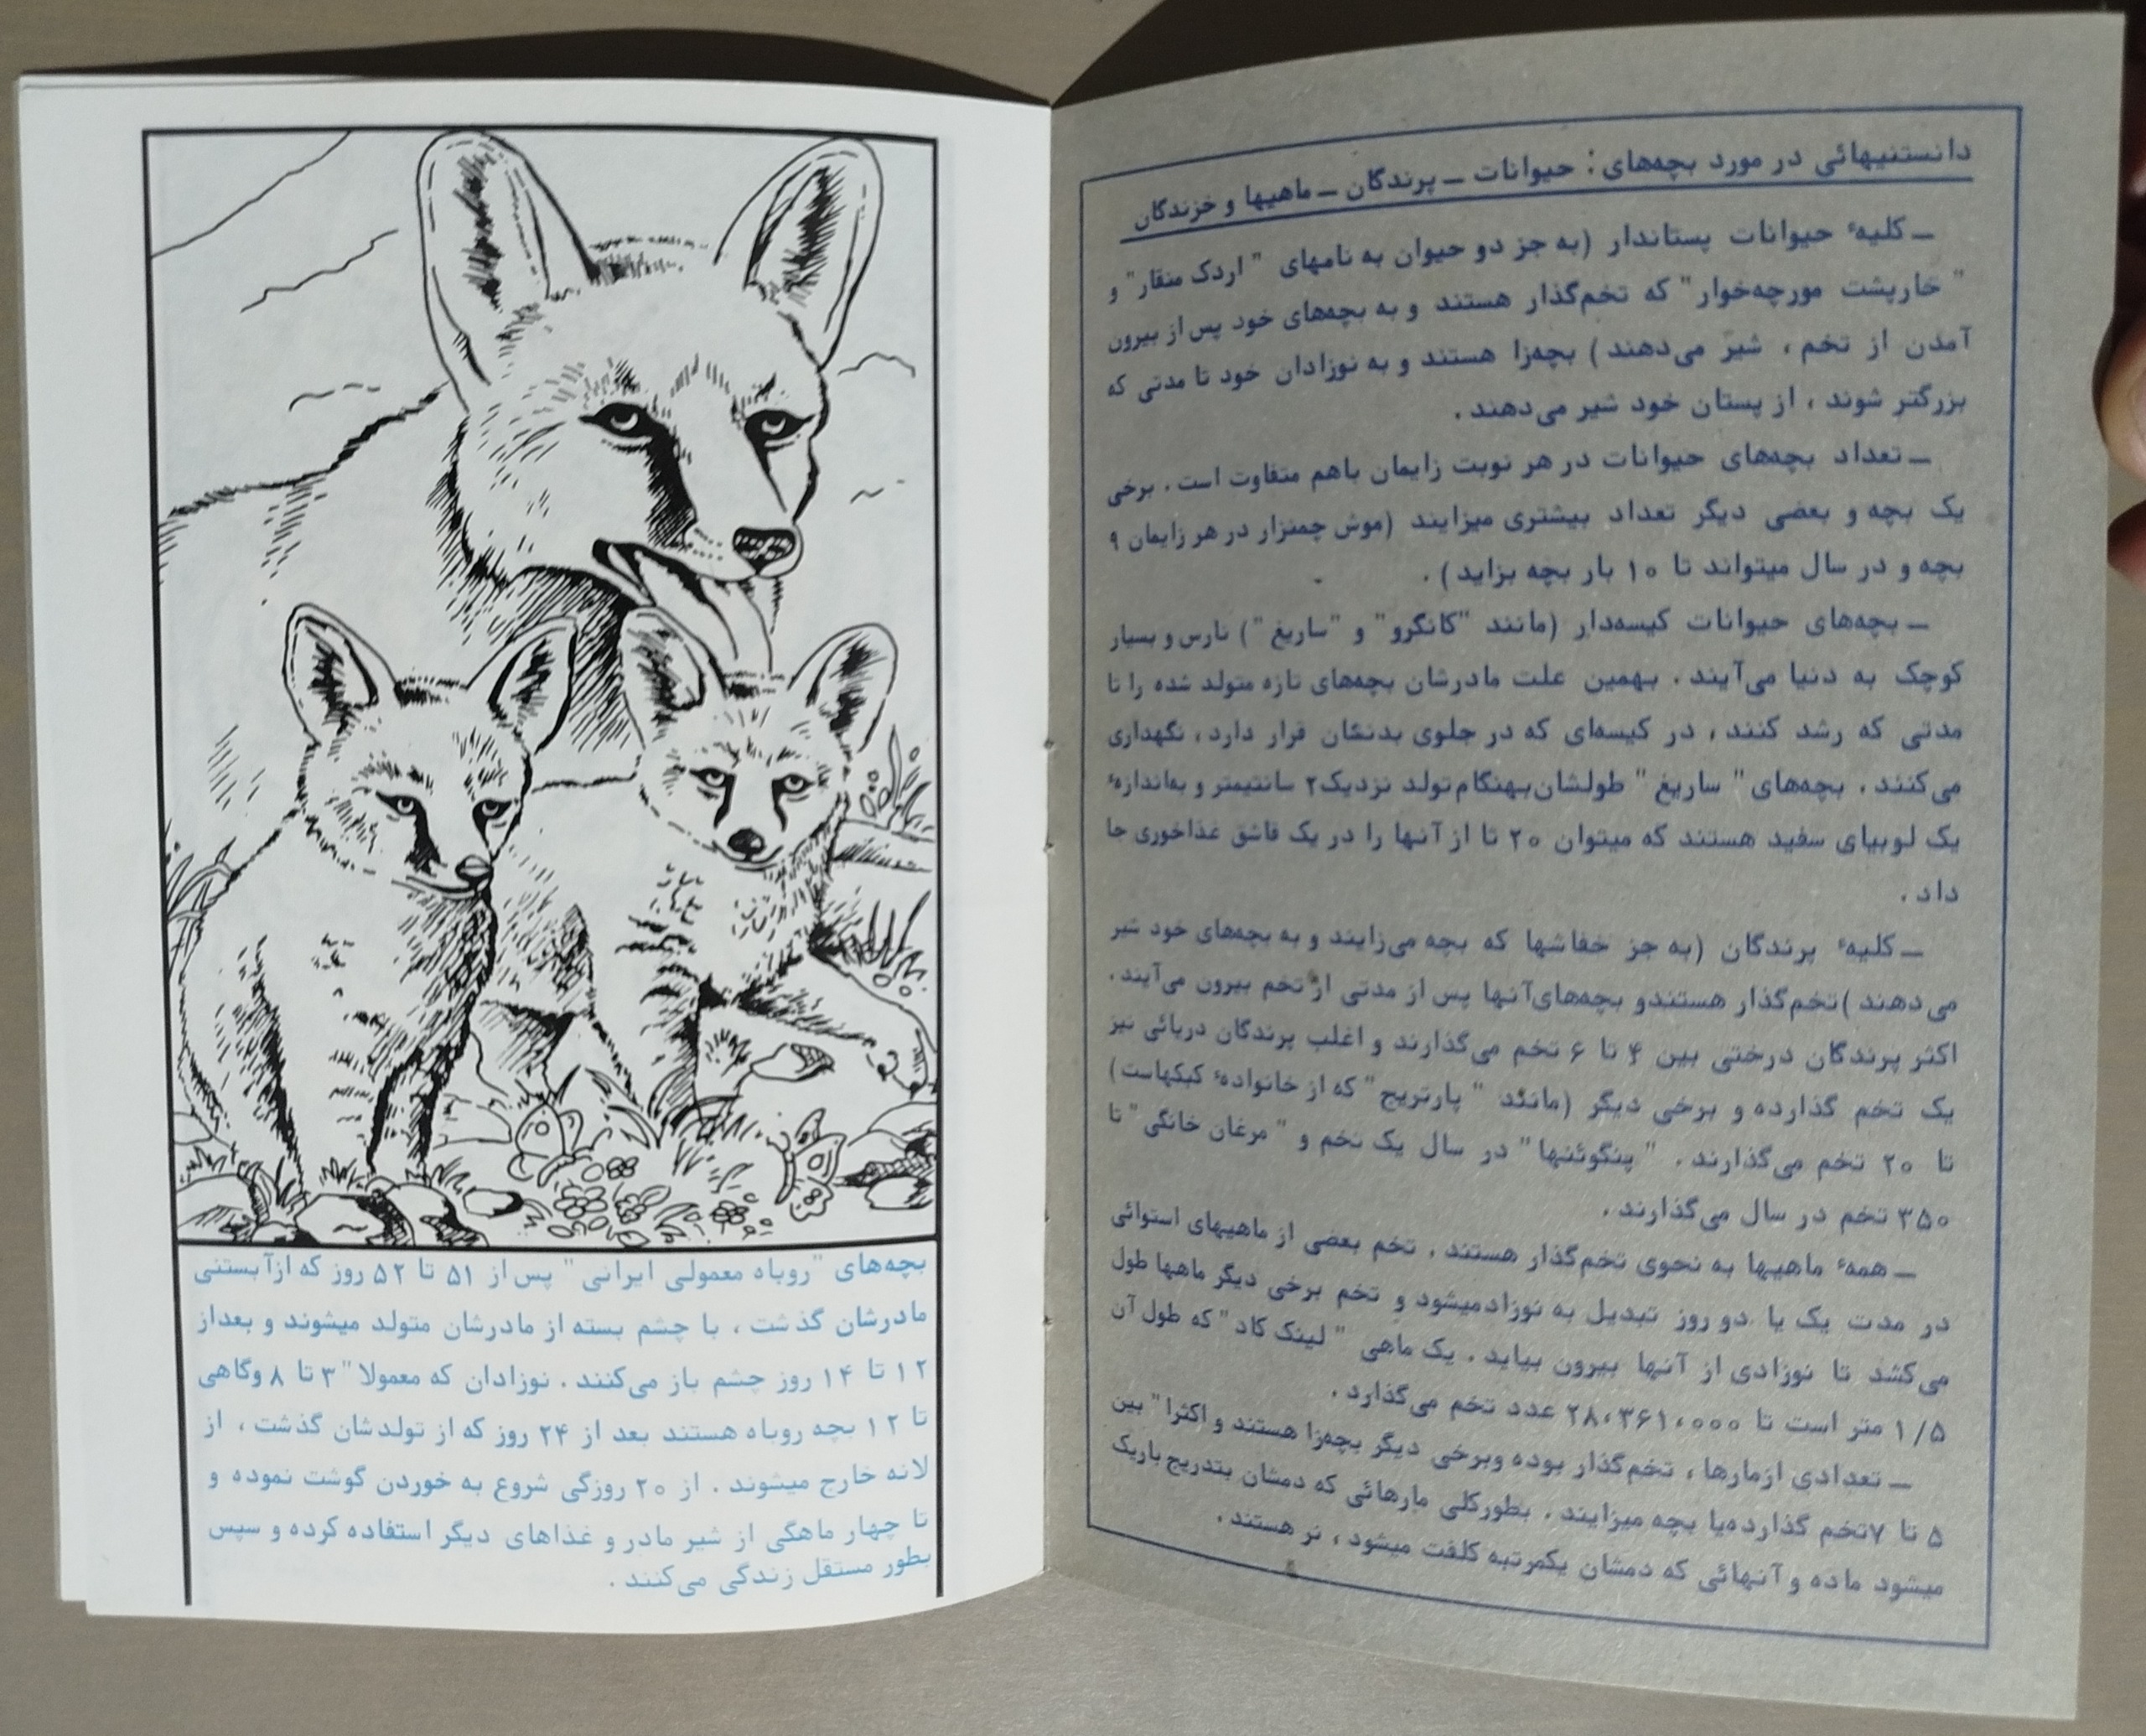 دانستنیهائی در مورد بچه‌های : حیوانات ـ پرندگان ـ ماهیها و خزندگان
ـ کلیهٔ حیوانات پستاندار (به جز دو حیوان به نامهای " اردک منقار" و
" خارپشت مورچه‌خوار" که تخم‌گذار هستند و به بچه‌های خود پس از بیرون
آمدن از تخم ، شیر می‌دهند ) بچه‌زا هستند و به نوزادان خود تا مدتی که
بزرگتر شوند ، از پستان خود شیر می‌دهند .
ـ تعداد بچه‌های حیوانات در هر نوبت زایمان باهم متفاوت است . برخی
یک بچه و بعضی دیگر تعداد بیشتری میزایند (موش چمنزار در هر زایمان ۹
بچه و در سال میتواند تا ۱۰ بار بچه بزاید ) .
ـ بچه‌های حیوانات کیسه‌دار (مانند "کانگرو" و "ساریغ" ) نارس و بسیار
کوچک به دنیا می‌آیند . بهمین علت مادرشان بچه‌های تازه متولد شده را تا
مدتی که رشد کنند ، در کیسه‌ای که در جلوی بدنشان قرار دارد ، نگهداری
می‌کنند . بچه‌های " ساریغ " طولشان بهنگام تولد نزدیک ۲ سانتیمتر و به‌اندازهٔ
یک لوبیای سفید هستند که میتوان ۲۰ تا از آنها را در یک قاشق غذاخوری جا
داد .
ـ کلیهٔ پرندگان (به جز خفاشها که بچه می‌زایند و به بچه‌های خود شیر
می‌دهند ) تخم‌گذار هستندو بچه‌های‌آنها پس از مدتی از تخم بیرون می‌آیند .
اکثر پرندگان درختی بین ۴ تا ۶ تخم می‌گذارند و اغلب پرندگان دریائی نیز
یک تخم گذارده و برخی دیگر (مانند " پارتریج " که از خانوادهٔ کبکهاست)
تا ۲۰ تخم می‌گذارند . " پنگوئنها" در سال یک تخم و " مرغان خانگی" تا
۳۵۰ تخم در سال می‌گذارند .
ـ همهٔ ماهیها به نحوی تخم‌گذار هستند . تخم بعضی از ماهیهای استوائی
در مدت یک یا دو روز تبدیل به نوزادمیشود و تخم برخی دیگر ماهها طول
می‌کشد تا نوزادی از آنها بیرون بیاید . یک ماهی " لینک کاد" که طول آن
۱/۵ متر است تا ۲۸،۳۶۱،۰۰۰ عدد تخم می‌گذارد .
ـ تعدادی ازمارها ، تخم‌گذار بوده وبرخی دیگر بچه‌زا هستند و اکثرا" بین
۵ تا ۷تخم گذارده‌یا بچه میزایند . بطورکلی مارهائی که دمشان بتدریج باریک
میشود ماده و آنهائی که دمشان یکمرتبه کلفت میشود ، نر هستند .
بچه‌های "روباه معمولی ایرانی" پس از ۵۱ تا ۵۲ روز که ازآبستنی
مادرشان گذشت ، با چشم بسته از مادرشان متولد میشوند و بعداز
۱۲ تا ۱۴ روز چشم باز می‌کنند . نوزادان که معمولا" ۳ تا ۸ وگاهی
تا ۱۲ بچه روباه هستند بعد از ۲۴ روز که از تولدشان گذشت ، از
لانه خارج میشوند . از ۲۰ روزگی شروع به خوردن گوشت نموده و
تا چهار ماهگی از شیر مادر و غذاهای دیگر استفاده کرده و سپس
بطور مستقل زندگی می‌کنند .